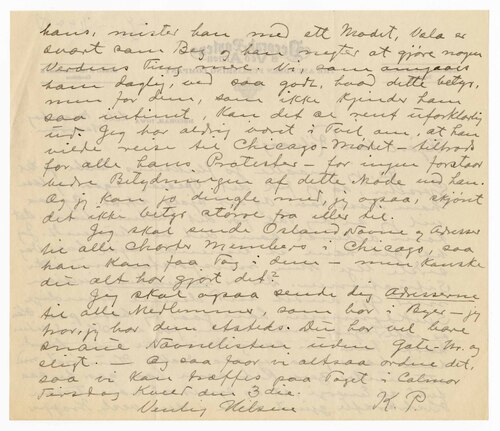 hans, mister han med ett Modet, Vala er
svart som Beg og han negter at gjöre nogen
Verdens Ting mere. Vi, som omgaaes
ham daglig, ved saa godt, hvad dette betyr,
men for dem, som ikke kjender ham
saa intimt, kan det se rent uforklarlig
ud. Jeg har aldrig varit i Tvil om, at han
vilde reise til Chicago-Mödet – tiltrods
for alle hans Protester – for ingen forstaar
bedre Betydningen af dette Möde end han.
Og jeg kan jo dingle med, jeg ogsaa, skjönt
det ikke betyr större fra eller til.
Jeg skal sende Osland Navne og Adresser
til alle Charter Members i Chicago, saa
han kan faa Tag i dem – men kanske
du alt har gjort det?
Jeg skal ogsaa sende dig Adresserne
til alle Medlemmer, som bor i Byer – jeg
tror, jeg har dem etsteds. Du har vel bare
Navnelisten uden Gate-Nr. og
sligt. – Og saa faar vi altsaa ordne det,
saa vi kan træffes paa Toget i Calmar
Tirsdag Kveld den 3die.
Venlig Hilsen K. P.